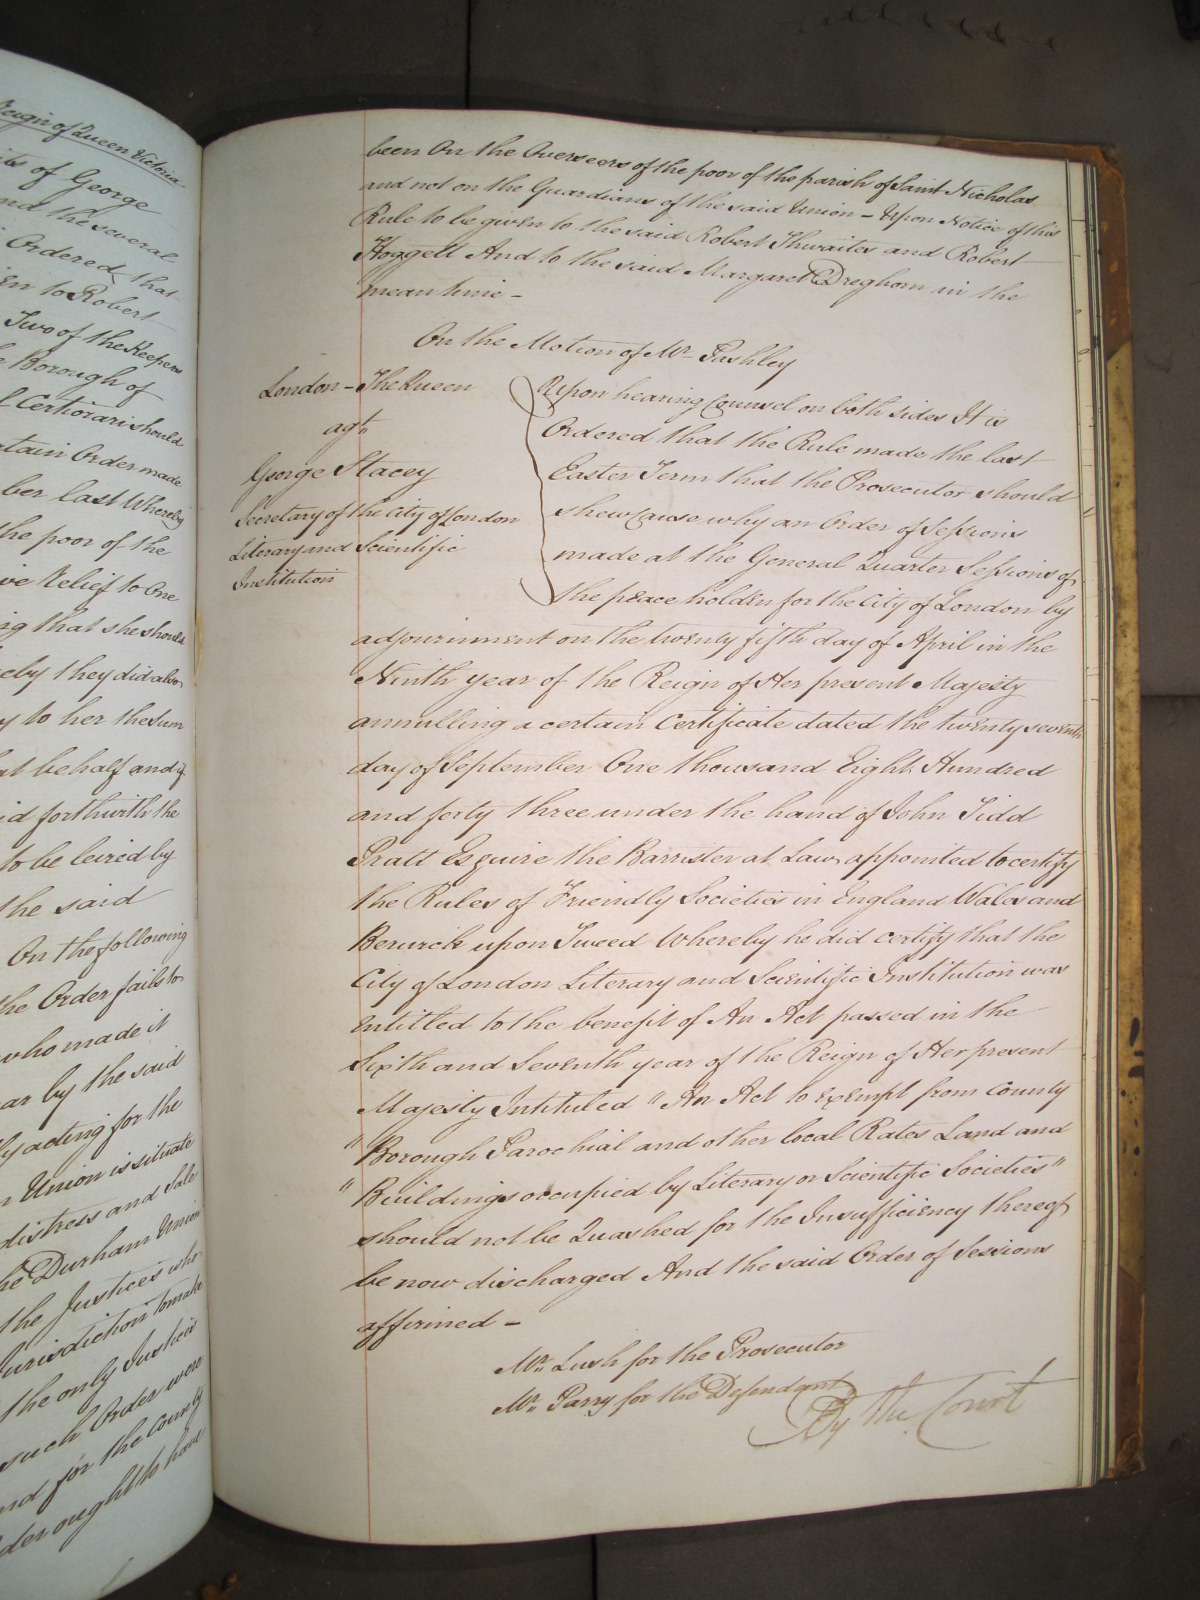 Reign of Queen Victoria
of George
and the several
Ordered that
to Robert
Two of the Keepers
Borough of
Certiorari should
Order made
last Whereby
the poor of the
Relief to One
that she should
they did also
to her the Sum
behalf and if
forthwith the
to be levied by
the said
On the following
the Order fails to
who made it
by the said
acting for the
Union is situate
distress and Sale
the Durham Union
the Justices who
Jurisdiction to make
the only Justices
such Order were
and for the County
ought to have
been On the Overseers of the poor of the parish of Saint Nicholas
and not on the Guardians of the said Union – Upon Notice of this
Rule to be given to the said Robert Thwaites and Robert
Hoggett And to the said Margaret Dreghorn in the
mean time –
On the Motion of Mr. Pashley
London – The Queen
agt.
George Stacey
Secretary of the City of London
Literary and Scientific
Institution
Upon hearing Counsel on both sides It is
Ordered that the Rule made the last
Easter Term that the Prosecutor should
shew Cause why an Order of Sessions
made at the General Quarter Sessions of
the peace holden for the City of London by
adjournment on the twenty fifth day of April in the
Ninth year of the Reign of Her present Majesty
annulling a certain Certificate dated the twenty seventh
day of September One thousand Eight Hundred
and forty three under the hand of John Tidd
Pratt Esquire the Barrister at Law appointed to certify
the Rules of Friendly Societies in England Wales and
Berwick upon Tweed Whereby he did certify that the
City of London Literary and Scientific Institution was
entitled to the benefit of An Act passed in the
Sixth and Seventh year of the Reign of Her present
Majesty Intituled "An Act to exempt from County
"Borough Parochial and other local Rates Land and
"Buildings occupied by Literary or Scientific Societies"
should not be Quashed for the Insufficiency thereof
be now discharged And the said Order of Sessions
affirmed –
Mr. Lush for the Prosecutor
Mr. Parry for the Defendant
By the Court